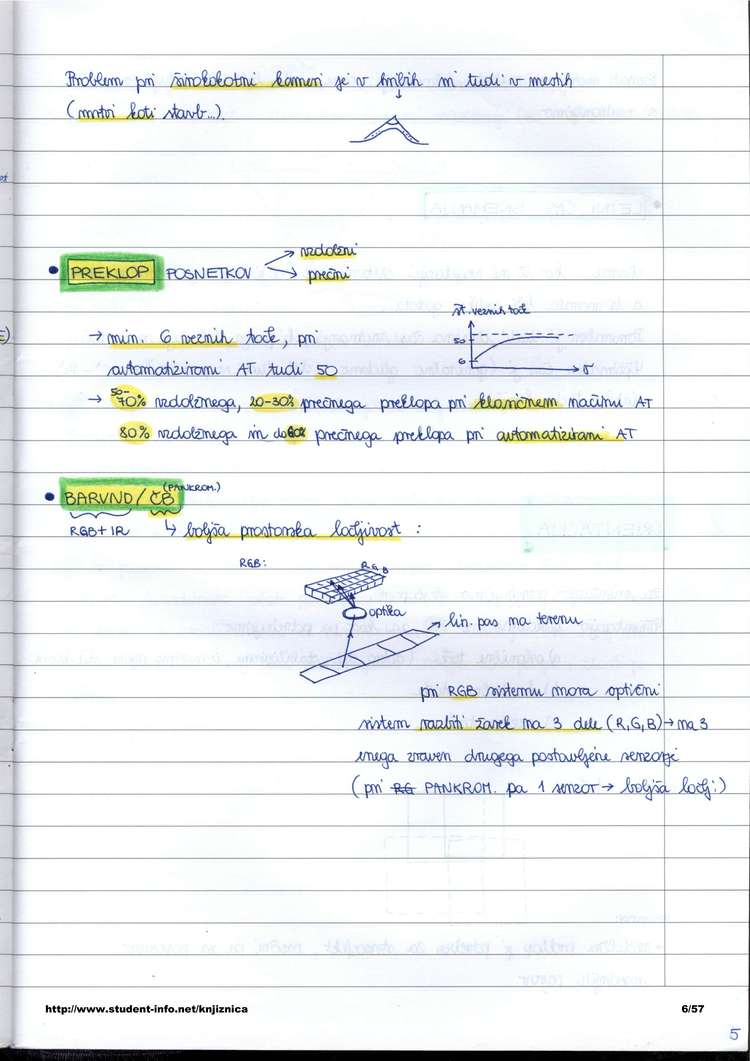 Problem pri širokokotni kameri je v hribih in tudi v mestih
(mrtvi koti stavb...)
• PREKLOP POSNETKOV → vzdolžni
→ prečni
št. veznih točk
50
6
σ
→ min. 6 veznih točk, pri
avtomatizirani AT tudi 50
→ 50-70% vzdolžnega, 20-30% prečnega preklopa pri klasičnem načinu AT
80% vzdolžnega in do 60% prečnega preklopa pri avtomatizirani AT
• BARVNO/ČB (PANKROM.)
RGB+IR ↳ boljša prostorska ločljivost :
RGB:
R G B
optika
→ lin. pas na terenu
pri RGB sistemu mora optični
sistem razbiti žarek na 3 dele (R,G,B) → na 3
enega zraven drugega postavljene senzorje
(pri RG PANKROM. pa 1 senzor → boljša ločlj.)
http://www.student-info.net/knjiznica
6/57
5